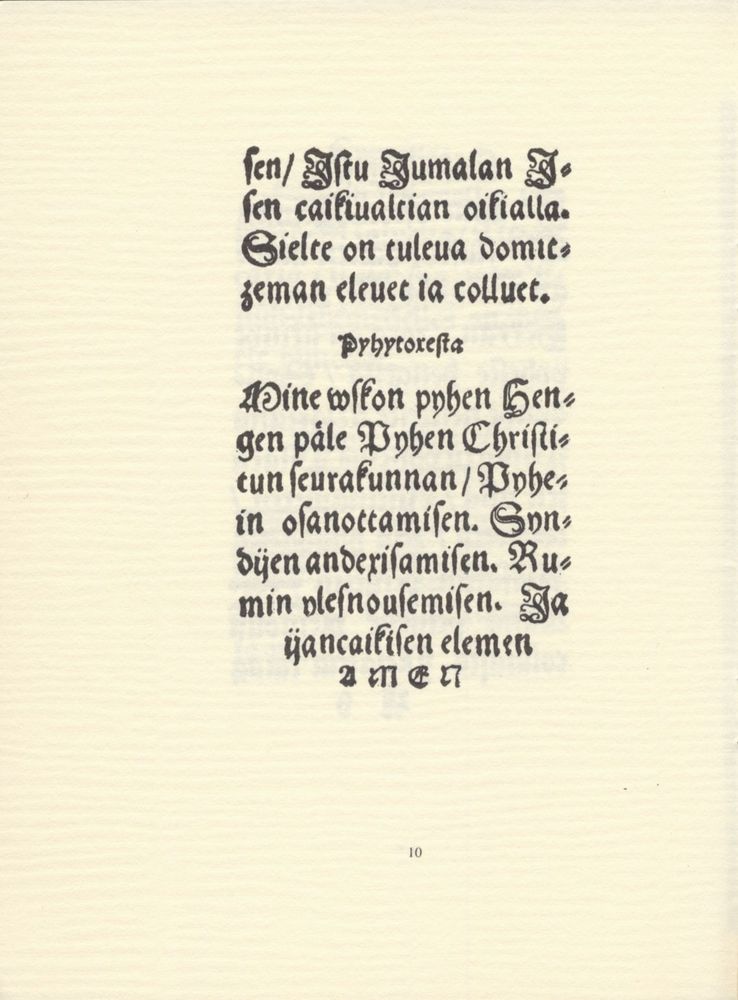 ſen/ Iſtu Jumalan I⸗
ſen caikiualtian oikialla.
Sielte on tuleua domit⸗
zeman eleuet ia colluet.
Pyhytoxeſta
MIne wſkon pyhen Hen⸗
gen päle Pyhen Chriſti⸗
tun ſeurakunnan/ Pyhe⸗
in oſanottamiſen. Syn⸗
dijen andexiſamiſen. Ru⸗
min yleſnouſemiſen. Ja
ijancaikiſen elemen
A M E N
10